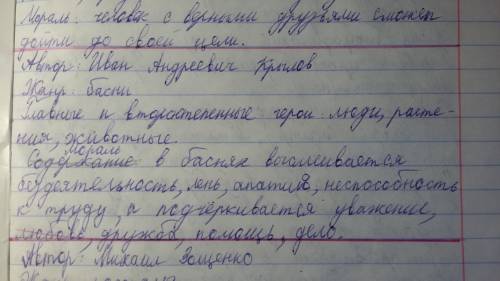 Мораль: человек с верными друзьями сможет
дойти до своей цели.
Автор: Иван Андреевич Крылов
Жанр: басни
Главные и второстепенные герои: люди, расте-
ния, животные.
мораль
Содержание в баснях высмеивается
бездеятельность, лень, апатия, неспособность
к труду, и подчёркивается уважение,
любовь, дружба, помощь, дело.
Автор: Михаил Зощенко